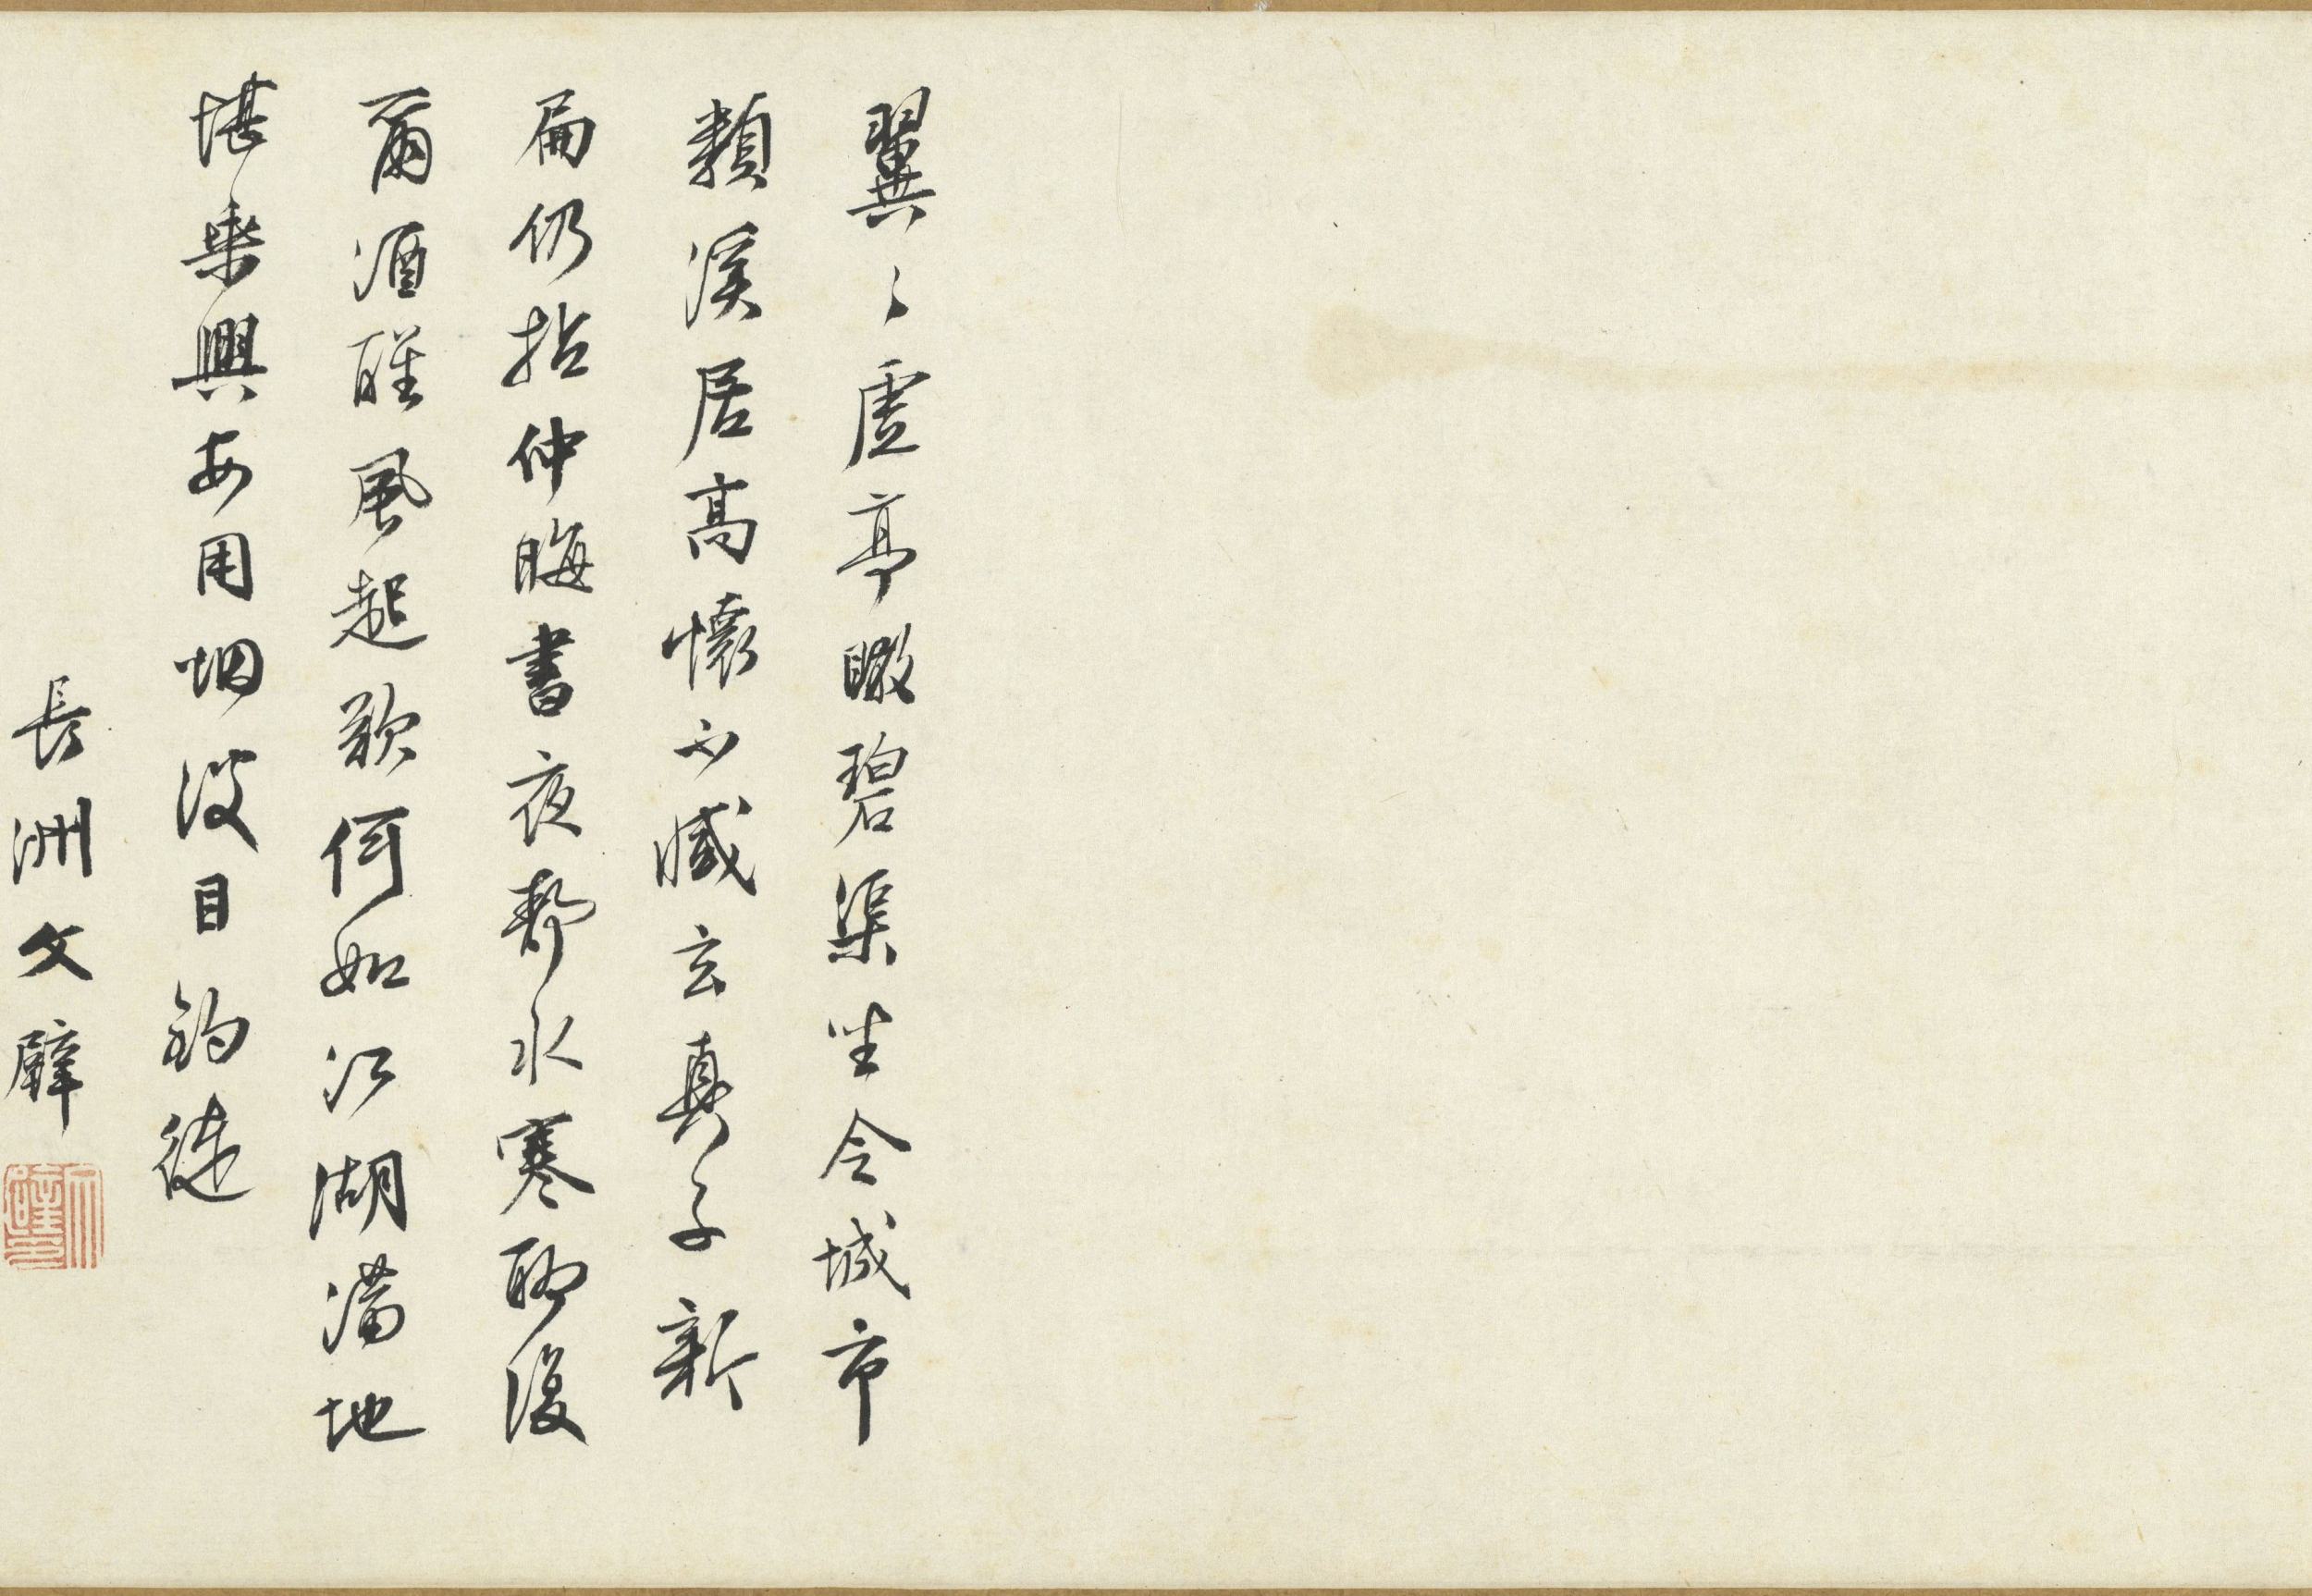 翼〻虛亭瞰碧渠坐令城市
類溪居高懷不減玄真子新
扁仍拈仲晦書夜靜水寒聊復
爾酒醒風起欲何如江湖滿地
堪乘興安用烟波目釣徒
長洲文璧